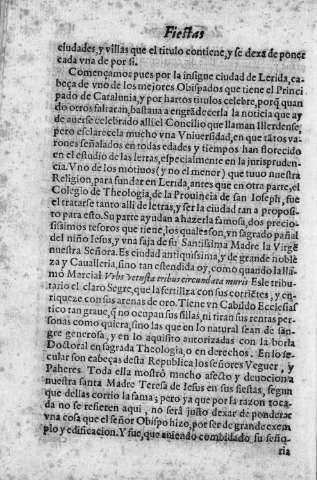 Fiestas
ciudades, y villas que el titulo contiene, y se dexã de poner
cada vna de por si.
Començamos pues por la insigne ciudad de Lerida, ca-
beça de vno de los mejores Obispados que tiene el Princi
pado de Catalunia, y por hartos titulos celebre, porq̃ quan
do otros faltaran, bastaua a engrãdecerla la noticia que ay
de auerse celebrado alli el Concilio que llaman Illerdense,
pero esclarecela mucho vna Vniuersidad, en que tãtos va-
rones señalados en todas edades y tiempos han florecido
en el estudio de las letras, especialmente en la jurispruden-
cia. Vno de los motiuos (y no el menor) que tuuo nuestra
Religion, para fundar en Lerida, antes que en otra parte, el
Colegio de Theologia, de la Prouincia de san Ioseph, fue
el tratarse tanto alli de letras, y ser la ciudad tan a proposi-
to para esto. Su parte ayudan a hazerla famosa, dos precio-
sissimos tesoros que tiene, los quales son, vn sagrado pañal
del niño Iesus, y vna faja de su Santissima Madre la Virgẽ
nuestra Señora. Es ciudad antiquissima, y de grande noble
za y Caualleria, sino tan estendida oy, como quando la lla-
mó Marcial Vrbs vetusta tribus circundata muris Este tribu-
tario el claro Segre, que la fertiliza con sus corriẽtes, y en-
riqueze con sus arenas de oro. Tiene vn Cabildo Ecclesias
tico tan graue, q̃ no ocupan sus sillas, ni tiran sus rentas per-
sonas como quiera, sino las que en lo natural sean de san-
gre generosa, y en lo aquisito autorizadas con la borla
Doctoral en sagrada Theologia, o en derechos. En lo se-
cular son cabeças desta Republica los señores Veguer, y
Paheres. Toda ella mostró mucho afecto y deuocion a
nuestra santa Madre Teresa de Iesus en sus fiestas, segun
que dellas corrio la fama; pero ya que por la razon toca-
da no se refieren aqui, no será justo dexar de ponderar
vna cosa que el señor Obispo hizo, por ser de grande exem
plo y edificacion. Y fue, que auiendo combidado su señ
ria